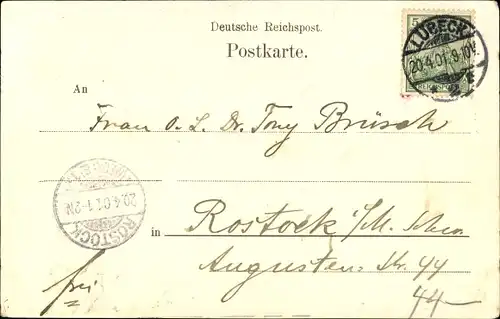 Deutsche Reichspost.
Postkarte.
5
REICHSPOST
LÜBECK
20.4.01.9-10V.
An
Frau O. L. Dr. Tony Brüsch
ROSTOCK
20.4.01.1-2N
in Rostock i/M.
Augusten Str. 44
44
frei